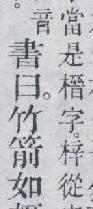 當是榗字。梓從
。音書曰。竹箭如